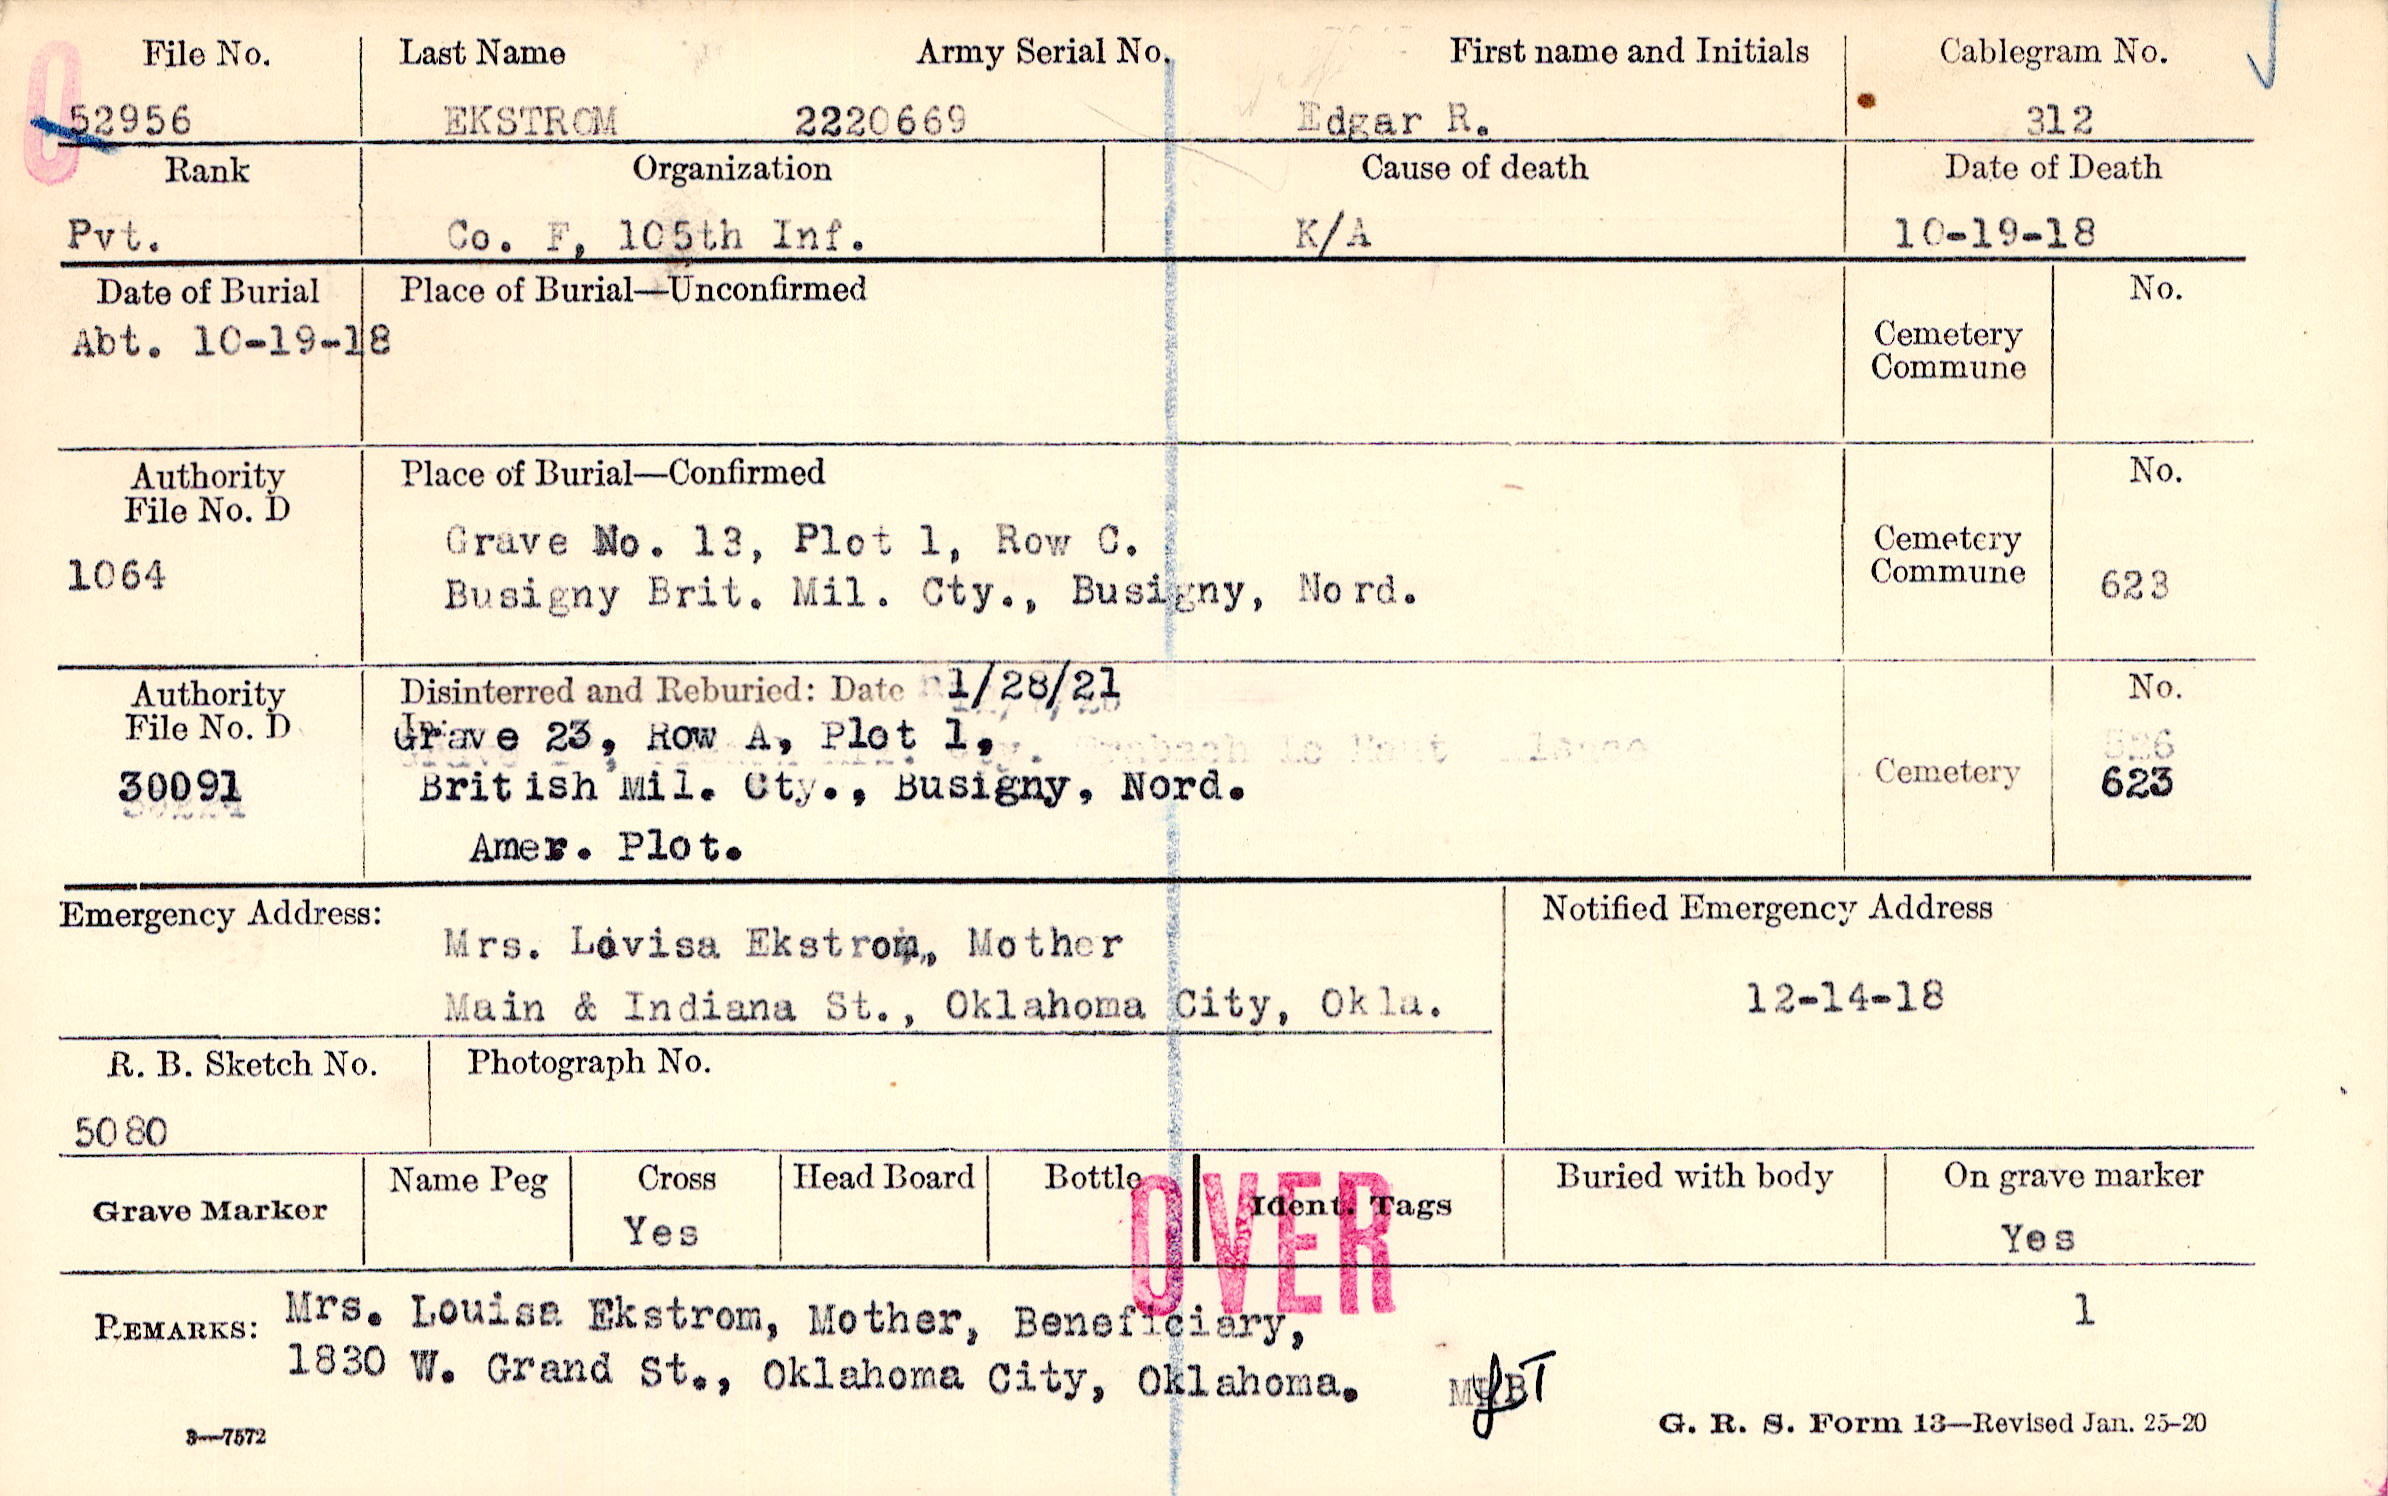 File No. Last Name Army Serial No. First name and Initials Cablegram No.
52956 EKSTROM 2220669 Edgar R. 312
Rank Organization Cause of death Date of Death
Pvt. Co. F, 105th Inf. K/A 10-19-18
Date of Burial Place of Burial—Unconfirmed No.
Abt. 10-19-18
Cemetery
Commune
Authority Place of Burial—Confirmed No.
File No. D
Grave No. 13, Plot 1, Row C. Cemetery
1064 Commune 623
Busigny Brit. Mil. Cty., Busigny, Nord.
Authority Disinterred and Reburied: Date 1/28/21 No.
File No. D In:
Grave 23, Row A, Plot 1,
526
30091 British Mil. Cty., Busigny, Nord. Cemetery 623
Amer. Plot.
Emergency Address: Notified Emergency Address
Mrs. Lovisa Ekstrom, Mother
Main & Indiana St., Oklahoma City, Okla. 12-14-18
R. B. Sketch No. Photograph No.
5080
Grave Marker Name Peg Cross Head Board Bottle Ident. Tags Buried with body On grave marker
Yes Yes
OVER
REMARKS: Mrs. Louisa Ekstrom, Mother, Beneficiary, 1
1830 W. Grand St., Oklahoma City, Oklahoma.
3—7572 G. R. S. Form 13—Revised Jan. 25-20